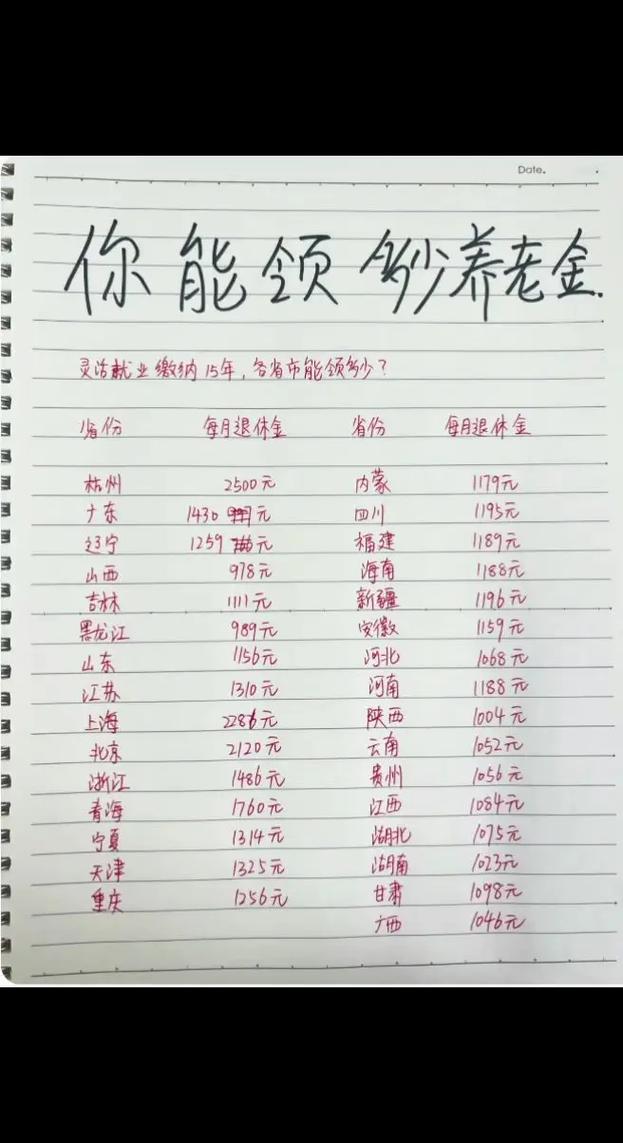 Date.
你能领多少养老金.
灵活就业缴纳15年,各省市能领多少?
省份 每月退休金 省份 每月退休金
杭州 2500元 内蒙 1179元
广东 1430元 四川 1195元
辽宁 1259元 福建 1189元
山西 978元 海南 1188元
吉林 1111元 新疆 1196元
黑龙江 989元 安徽 1159元
山东 1156元 河北 1068元
江苏 1310元 河南 1188元
上海 2286元 陕西 1004元
北京 2120元 云南 1052元
浙江 1486元 贵州 1056元
青海 1760元 江西 1084元
宁夏 1314元 湖北 1075元
天津 1325元 湖南 1023元
重庆 1256元 甘肃 1098元
广西 1046元